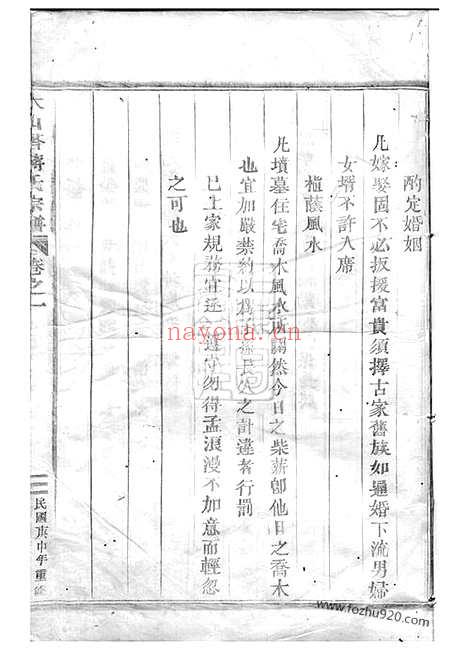 酌定婚姻
凡嫁娶固不必扳援富貴須擇古家舊族如逼婚下流男婦
女壻不許入席
植蔭風水
凡墳墓住宅喬木風水所關然今日之柴薪卽他日之喬木
也宜加嚴禁約以為子孫長久之計違者行罰
已上家規務宜遵守勿得孟浪漫不加意而輕忽
之可也
氏宗譜
卷之一
民國庚申年重修
nayona.cn
www.fozhu920.com